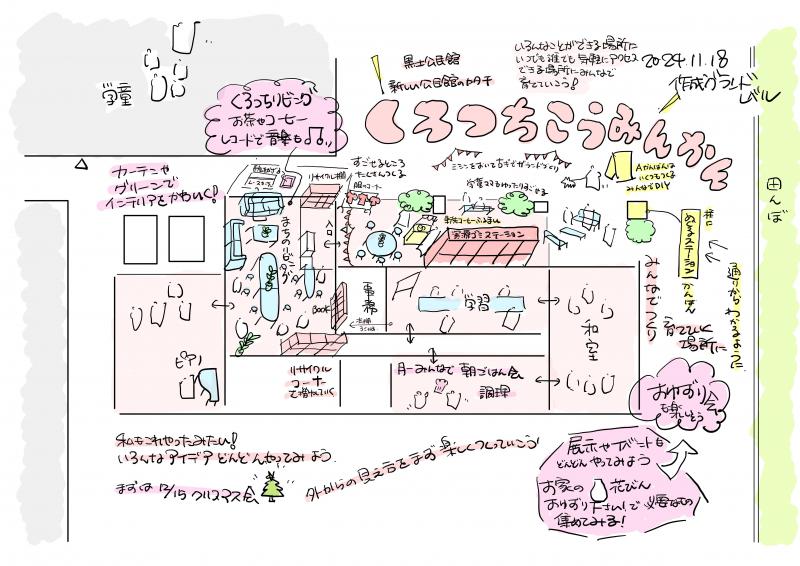 学童
黒土公民館
新しい公民館のカタチ
いろんなことができる場所に
いつでも誰でも気軽にアクセス
できる場所にみんなで
育てていこう!
2024.11.18
作成グランドレベル
くろつちこうみんかん
くろつちリビング
お茶やコーヒー
レコードで音楽も
カーテンや
グリーンで
インテリアをかわいく!
リサイクル棚
すごせるところ
たくさんつくる
みんなでDIY
田んぼ
まちのリビング
入口
資源ゴミステーション
ステーション
かんばん
通りからわかるように
みんなでつくり
育てていく
場所に
事務
BOOK
学習
和室
ピアノ
リサイクル
コーナー
月一みんなで朝ごはん会
調理
おゆずり会
も楽しそう
私もこれやってみたい!
いろんなアイデアどんどんやってみよう
まずは12/15クリスマス会
外からの見え方をまず楽しくつくっていこう
展示やイベントも
どんどんやってみよう
お家の花びん
おゆずり下さい!で必要なもの
集めてみる!